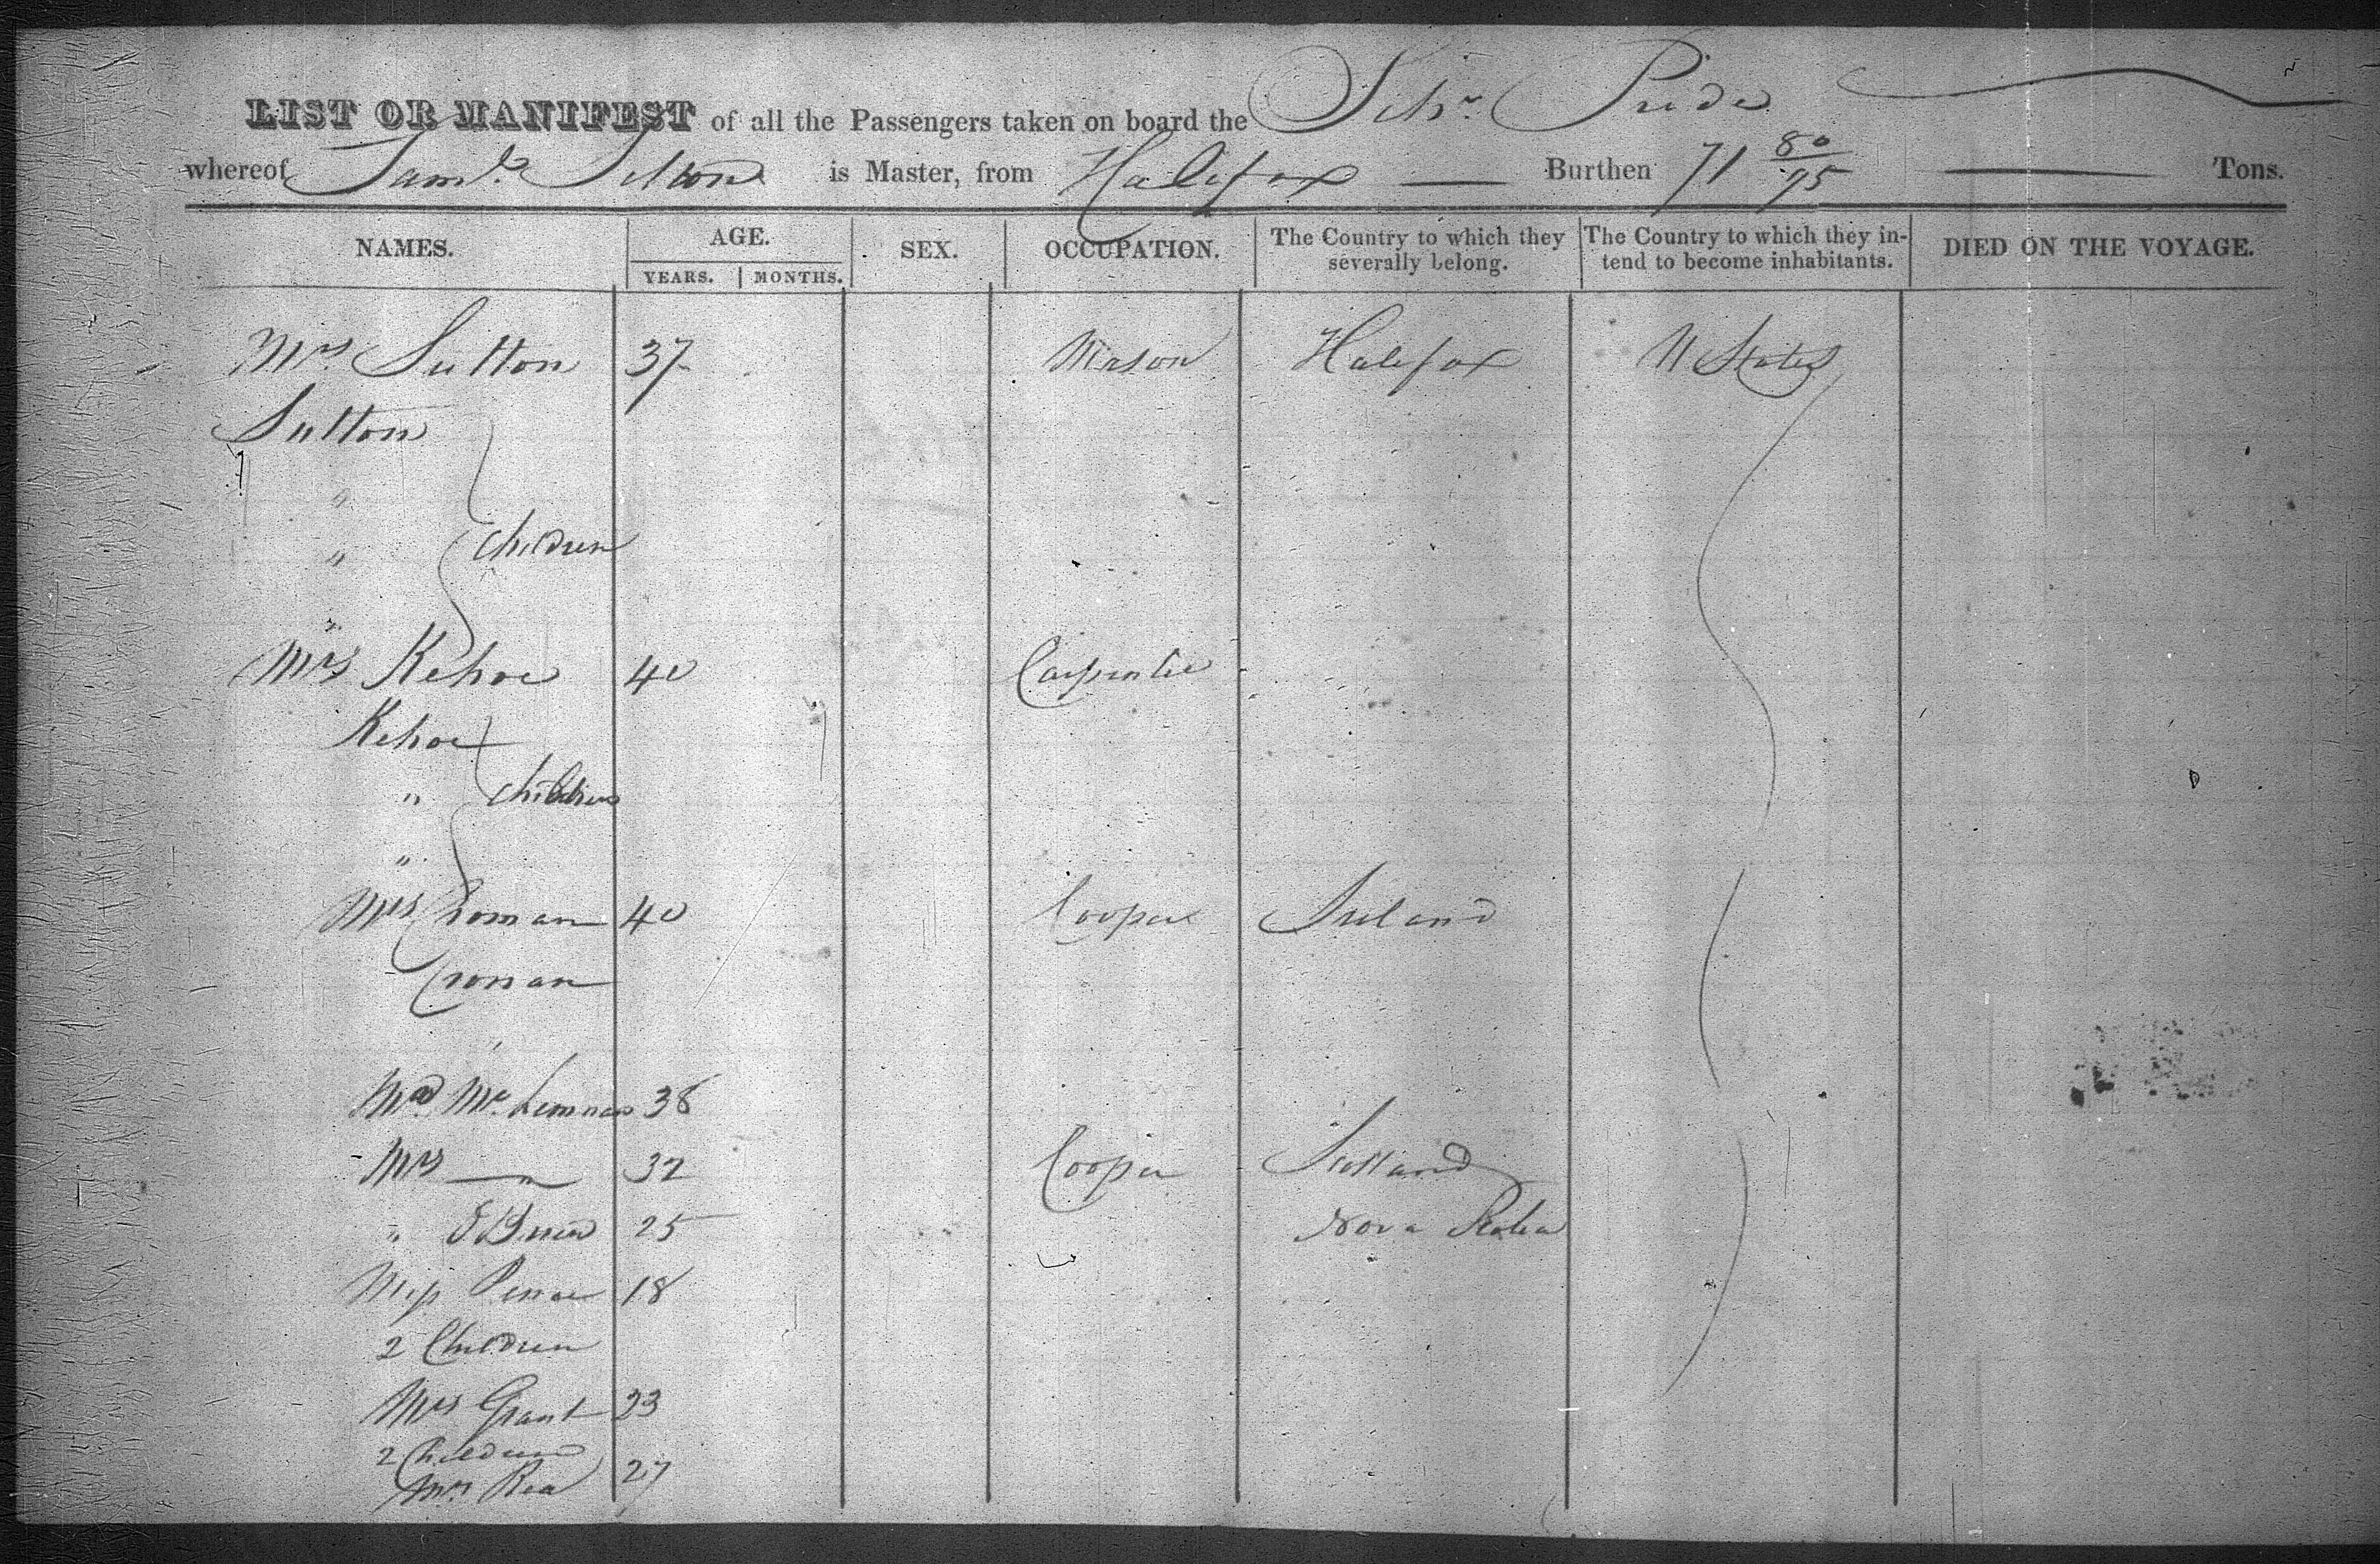 LIST OR MANIFEST of all the Passengers taken on board the Schr. Pride
whereof Saml. is Master, from Halifax Burthen 71 80/95 Tons.
NAMES. AGE. SEX. OCCUPATION. The Country to which they severally belong. The Country to which they intend to become inhabitants. DIED ON THE VOYAGE.
YEARS. MONTHS.
Mrs. Sutton 37 Mason Halifax U States
Sutton
"
" Children
"
Mrs Kehoe 40 Carpenter
Kehoe
" Children
"
Mrs Cronan 40 Cooper Ireland
Cronan
Mc 38
Mrs 32 Cooper Scotland
" 25 Nova Scotia
Miss 18
2 Children
Mrs Grant 23
2 Children
Mrs Rea 27